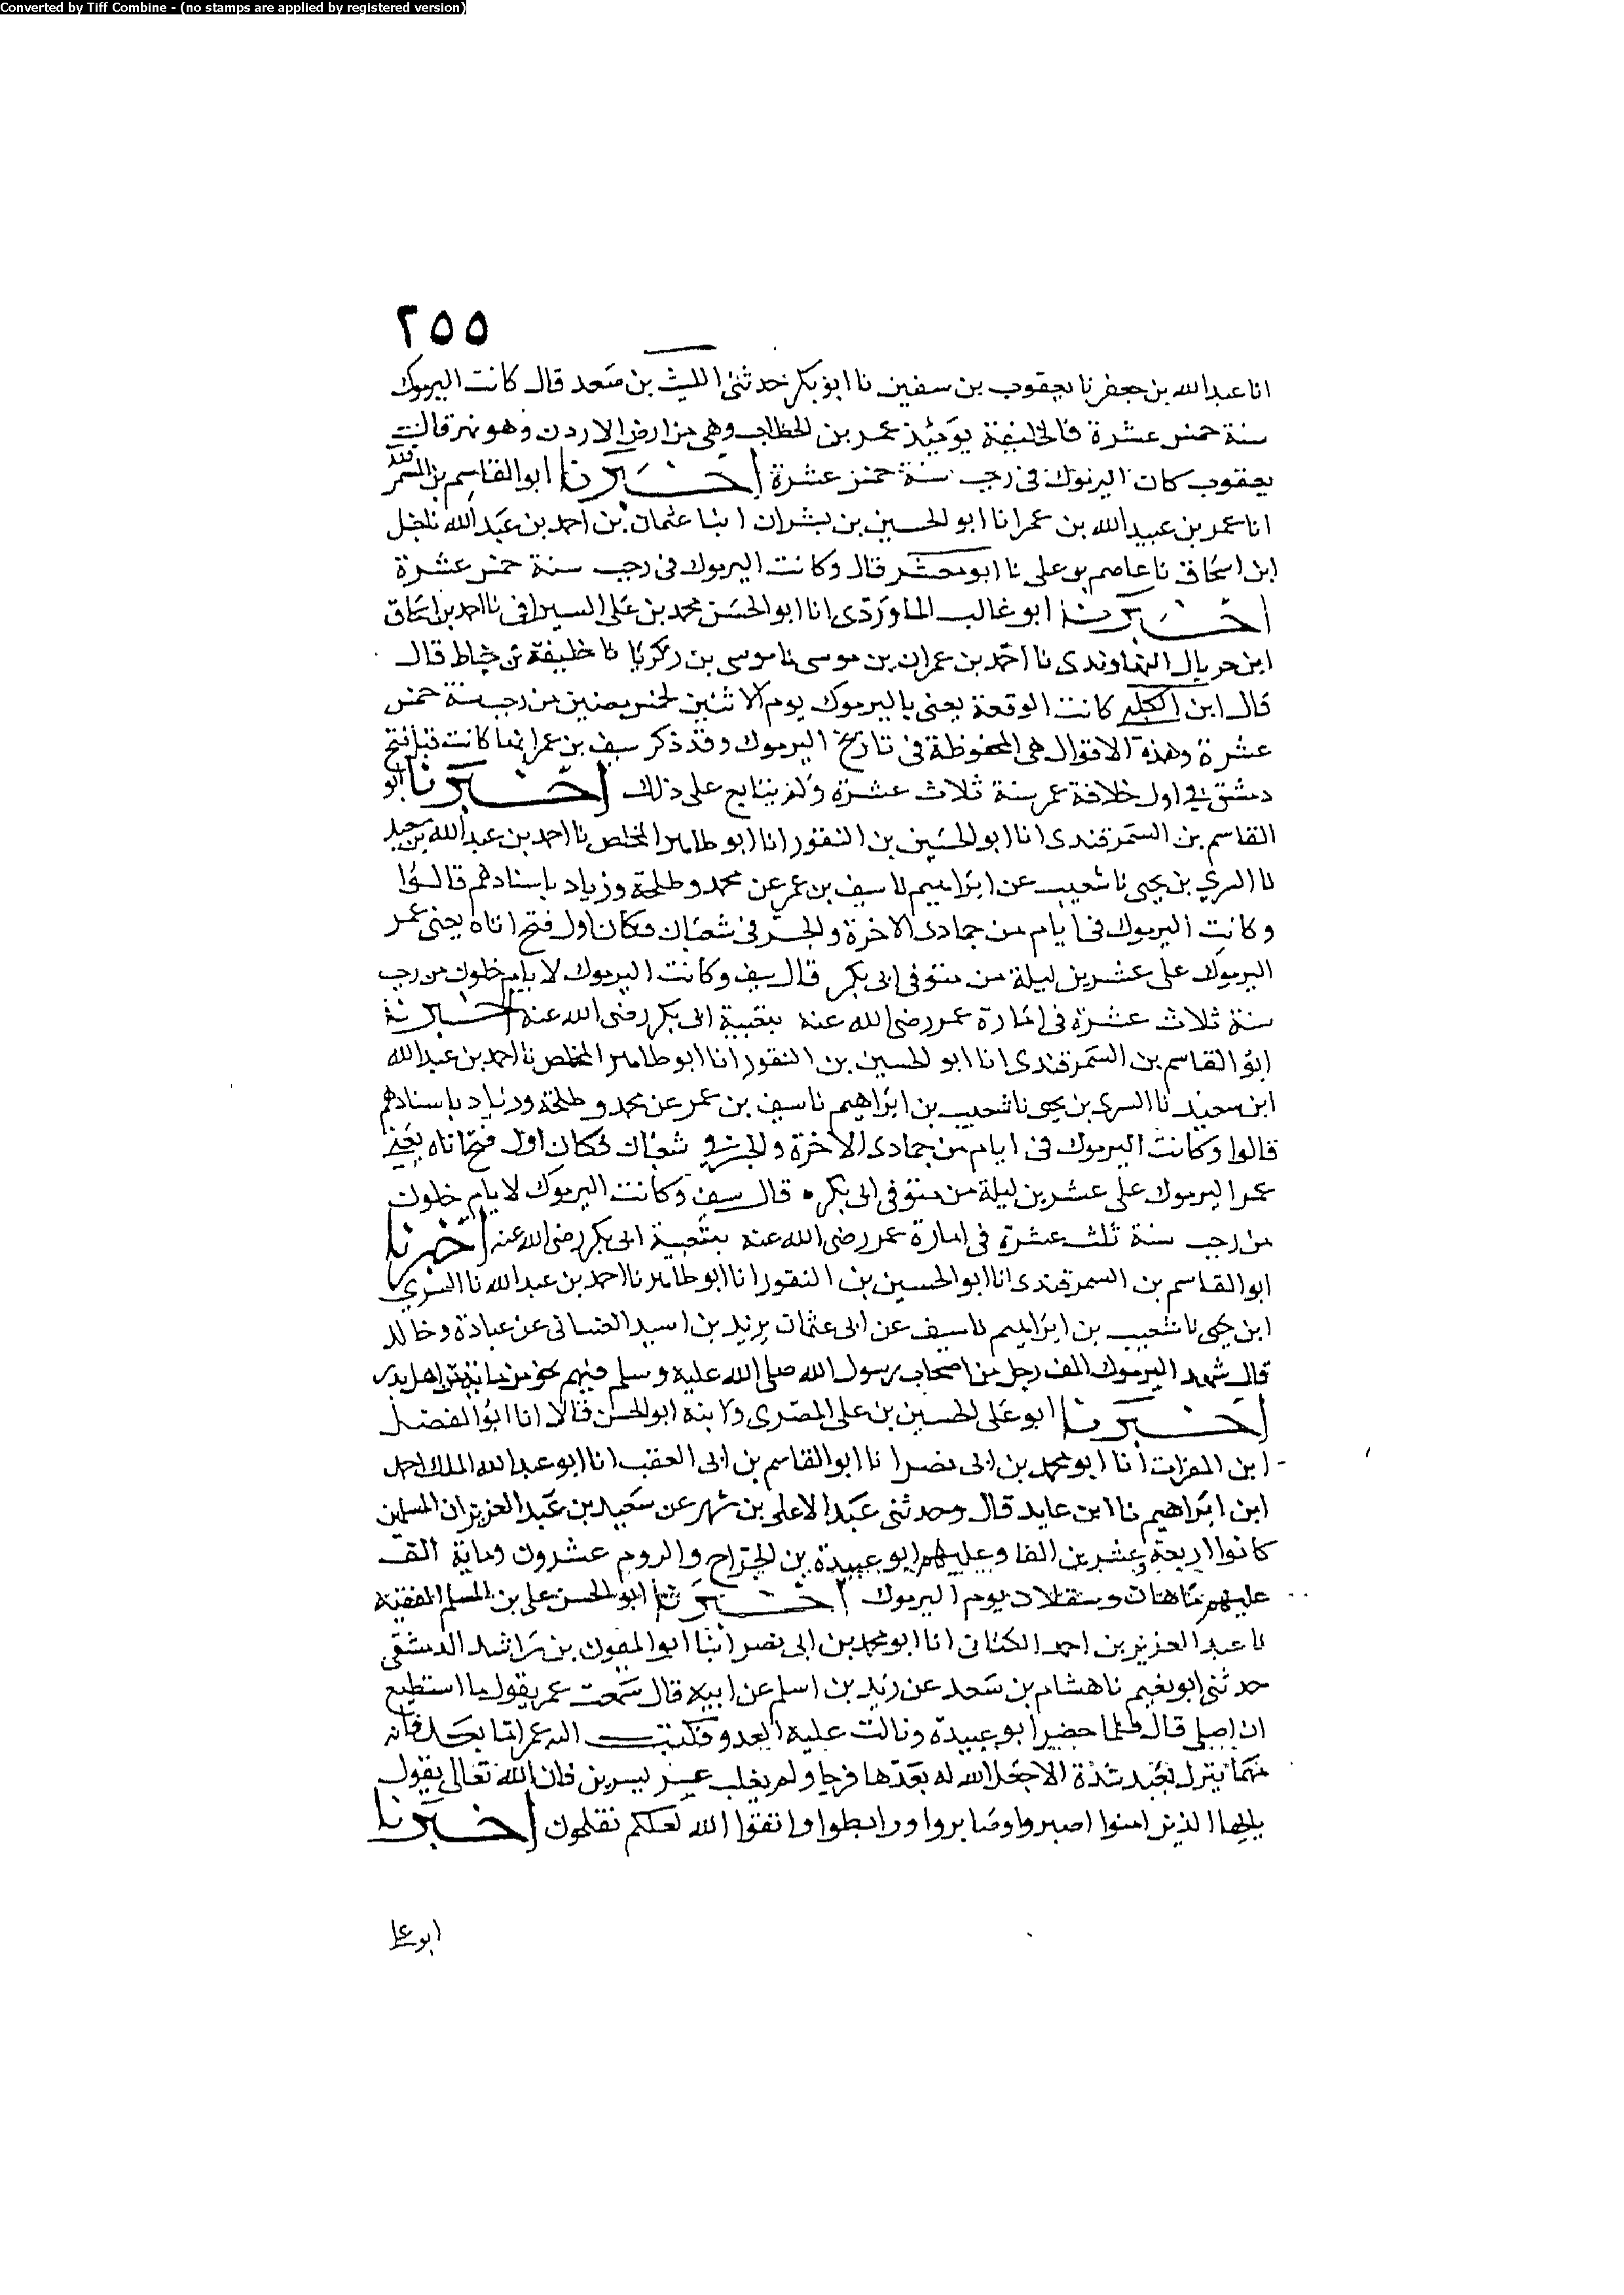 Converted by Tiff Combine - (no stamps are applied by registered version)
٢٥٥
انا عبد الله بن جعفر نا يعقوب بن سفين نا ابو بكر حدثنى الليث بن سعد قال كانت اليرموك
سنة خمس عشرة فالخليفة يومئذ عمر بن الخطاب وهى من ارض الاردن وهو نهر قالت
يعقوب كان اليرموك فى رجب سنة خمس عشرة اخبرنا ابو القاسم بن السمرقندى
انا عمر بن عبيد الله بن عمر انا ابو الحسين بن بشران انبا عثمان بن احمد بن عبد الله نا حنبل
ابن اسحاق نا عاصم بن على نا ابو معشر قال وكانت اليرموك فى رجب سنة خمس عشرة
اخبرنا ابو غالب الماوردى انا ابو الحسن محمد بن على السيرافى نا احمد بن اسحاق
ابن حربال النهاوندى نا احمد بن عمران بن موسى نا موسى بن زكريا نا خليفة بن خياط قال
قال ابن الكلبى كانت الوقعة يعنى باليرموك يوم الاثنين لخمس مضين من رجب سنة خمس
عشرة وهذه الاقوال هى المحفوظة فى تاريخ اليرموك وقد ذكر سيف بن عمر انها كانت قبل فتح
دمشق فى اول خلافة عمر سنة ثلاث عشرة ولم يتابع على ذلك اخبرنا ابو
القاسم بن السمرقندى انا ابو الحسين بن النقور انا ابو طاهر المخلص نا احمد بن عبد الله بن سعيد
نا السري بن يحيى نا شعيب عن ابراهيم نا سيف بن عمر عن محمد وطلحة وزياد باسنادهم قالوا
وكانت اليرموك فى ايام من جمادى الاخرة والجسر فى شعبان فكان اول فتح اتاه يعنى عمر
اليرموك على عشرين ليلة من متوفى ابى بكر قال سيف وكانت اليرموك لايام خلون من رجب
سنة ثلاث عشرة فى امارة عمر رضى الله عنه بتعبية ابى بكر رضى الله عنه اخبرنا
ابو القاسم بن السمرقندى انا ابو الحسين بن النقور انا ابو طاهر المخلص نا احمد بن عبد الله
ابن سعيد نا السرى بن يحيى نا شعيب بن ابراهيم نا سيف بن عمر عن محمد وطلحة وزياد باسنادهم
قالوا وكانت اليرموك فى ايام من جمادى الاخرة والجسر فى شعبان فكان اول فتح اتاه يعنى
عمر اليرموك على عشرين ليلة من متوفى ابى بكر • قال سيف وكانت اليرموك لايام خلون
من رجب سنة ثلث عشرة فى امارة عمر رضى الله عنه بتعبية ابى بكر رضى الله عنه اخبرنا
ابو القاسم بن السمرقندى انا ابو الحسين بن النقور انا ابو طاهر نا احمد بن عبد الله نا السري
ابن يحيى نا شعيب بن ابراهيم نا سيف عن ابى عثمان يزيد بن اسيد الغسانى عن عبادة وخالد
قال شهد اليرموك الف رجل من اصحاب رسول الله صلى الله عليه وسلم فيهم نحو من مائة من اهل بدر
اخبرنا ابو على الحسين بن على المصرى ولابنه ابو الحسن قالا انا ابو الفضل
ابن الفرات انا ابو محمد بن ابى نصر انا ابو القاسم بن ابى العقب انا ابو عبد الله الملك احمد
ابن ابراهيم نا ابن عايد قال وحدثنى عبد الاعلى بن مسهر عن سعيد بن عبد العزيز ان المسلمين
كانوا اربعة وعشرين الفا وعليهم ابو عبيدة بن الجراح والروم عشرون ومائة الف
عليهم باهان وسقلاد يوم اليرموك اخبرنا ابو الحسن على بن المسلم الفقيه
نا عبد العزيز بن احمد الكتانى انا ابو محمد بن ابى نصر انبا ابو الميمون بن راشد الدمشقى
حدثنى ابو نعيم نا هشام بن سعد عن زيد بن اسلم عن ابيه قال سمعت عمر يقول ما استطيع
ان اصلى قال فلما حضر ابو عبيدة ونالت عليه العدو فكتب اليه عمر اما بعد فانه
مهما ينزل بعبد شدة الا جعل الله له بعدها فرجا ولم يغلب عسر يسرين فان الله تعالى يقول
يايها الذين امنوا اصبروا وصابروا ورابطوا واتقوا الله لعلكم تفلحون اخبرنا
ابو على